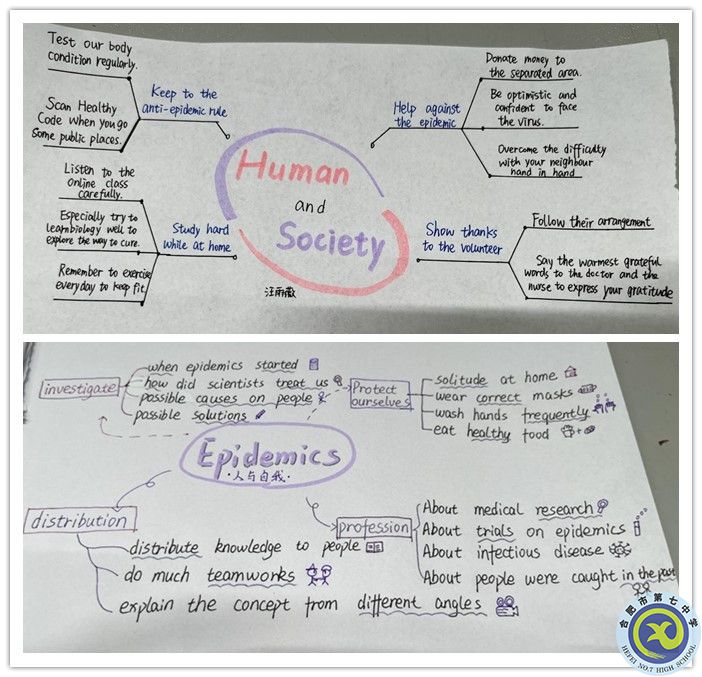 Test our body
condition regularly.
Scan Healthy
Code when you go
some public places.
Keep to the
anti-epidemic rule
Listen to the
online class
carefully.
Especially try to
learn biology well to
explore the way to cure.
Remember to exercise
everyday to keep fit
Study hard
while at home
Human
and
Society
汪雨薇
Help against
the epidemic
Donate money to
the separated area.
Be optimistic and
confident to face
the virus.
Overcome the difficulty
with your neighbour
hand in hand
Show thanks
to the volunteer
Follow their arrangement
Say the warmest grateful
words to the doctor and the
nurse to express your gratitude
investigate
when epidemics started
how did scientists treat us
possible causes on people
possible solutions
Protect
ourselves
solitude at home
wear correct masks
wash hands frequently
eat healthy food
Epidemics
·人与自我·
distribution
distribute knowledge to people
do much teamworks
explain the concept from different angles
profession
About medical research
About trials on epidemics
About infectious disease
About people were caught in the past
合肥市第七中学
HEFEI NO.7 HIGH SCHOOL